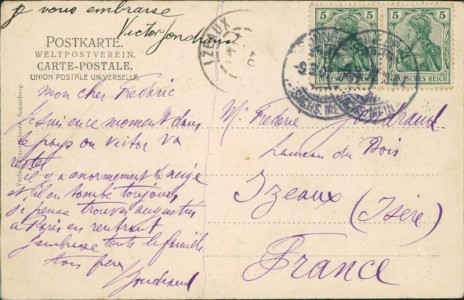 je vous embrasse
Victor Jondrand
POSTKARTE.
WELTPOSTVEREIN.
CARTE-POSTALE.
UNION POSTALE UNIVERSELLE.
IZEAUX
5 5
DEUTSCHES REICH
mon cher Frédéric
Je suis en ce moment dans
le pays ou victor va
rester
il y a énormement de neige
et il en tombe toujours
je pense trouver augustin
a Paris en rentrant
J'embrasse toute la famille
ton frère
Jondrand
M. Frédéric Jondrand
hameau du Bois
Izeaux (Isère)
France